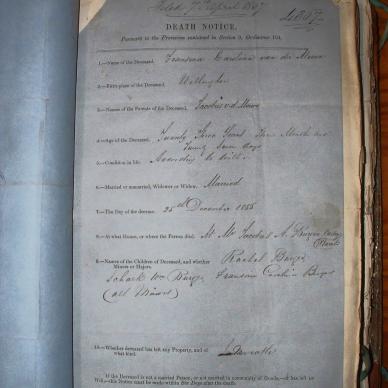 Filed 7 April 1857
DEATH NOTICE,
Pursuant to the Provisions contained in Section 9, Ordinance 104,
1.—Name of the Deceased. Fransina Carolina van der Merwe
2.—Birth-place of the Deceased. Wellington
3.—Names of the Parents of the Deceased. Jacobus v d Merwe
4.—Age of the Deceased. Twenty Three Years, Months and
Twenty Seven days
5.—Condition in life. According to
6.—Married or unmarried, Widower or Widow. Married
7.—The Day of the decease. 25th December 1855
8.—At what House, or where the Person died. At Mr Jacobus A.
9.—Names of the Children of Deceased, and whether Rachel Burger
Minors or Majors.
Schalk Wm Burger, Fransina Carolina Burger
(all Minors)
10.—Whether deceased has left any Property, and of
what kind.
If the Deceased is not a married Person, or not married in community of Goods,
Will,—this Notice must be made within Six Days after the death.